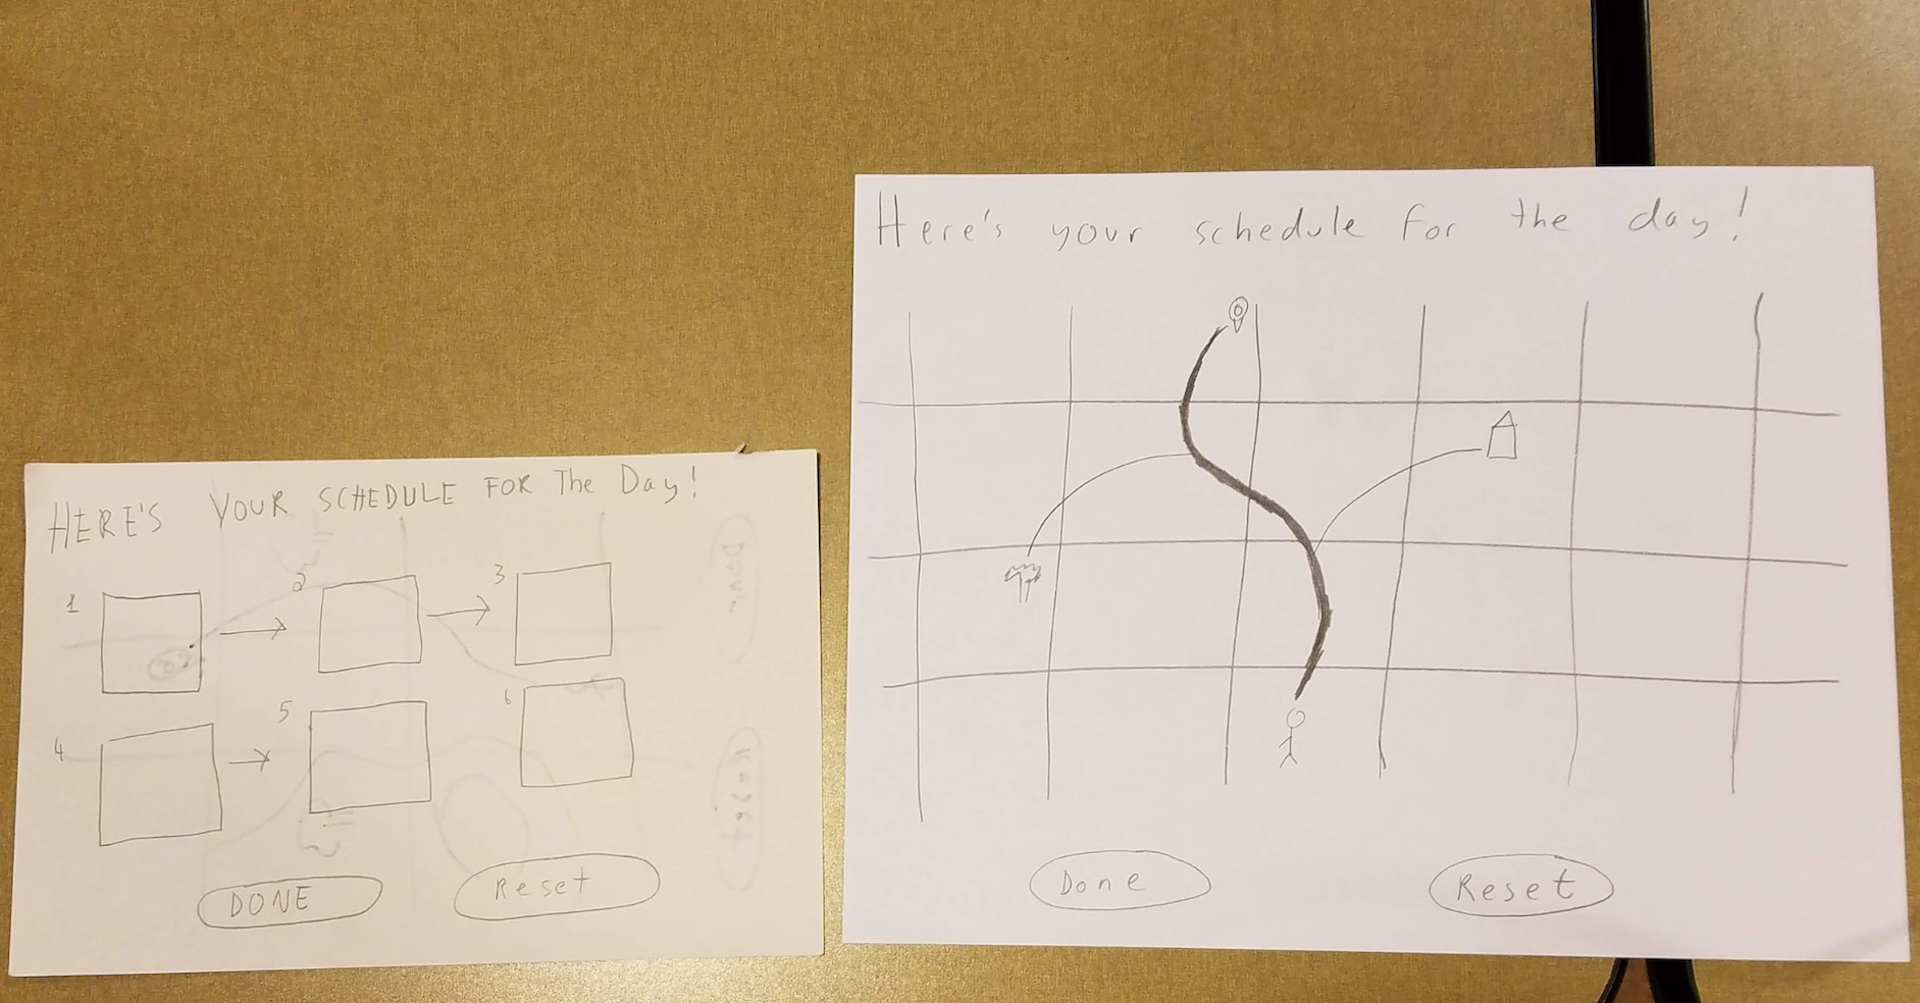 HERE'S YOUR SCHEDULE FOR The Day!
1
2
3
4
5
6
DONE
Reset
Here's your schedule for the day!
Done
Reset